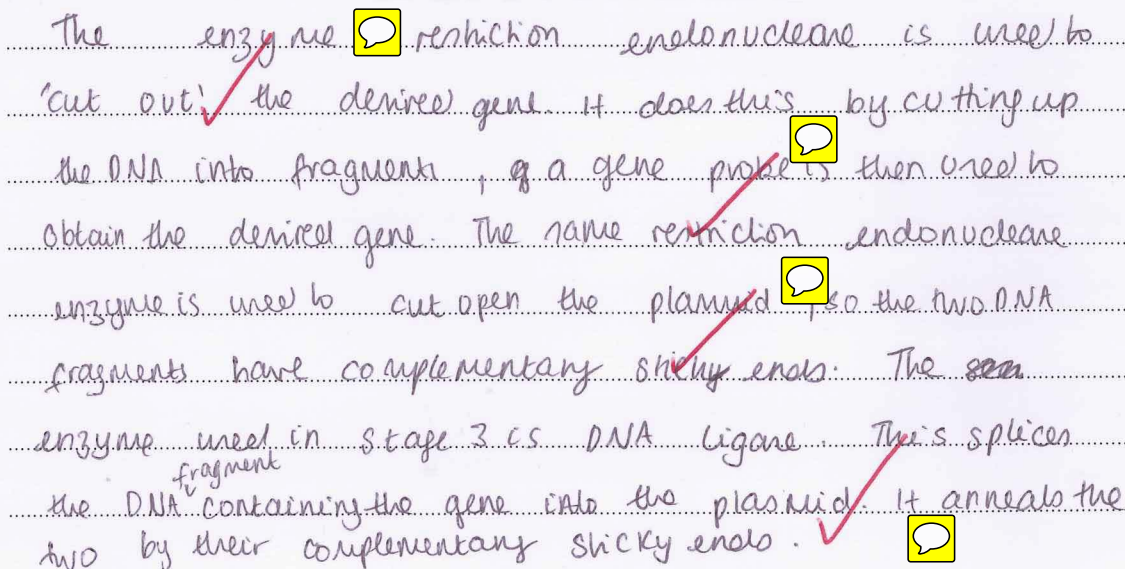 The enzyme restriction endonuclease is used to
'cut out' the desired gene. It does this by cutting up
the DNA into fragments, a gene probe is then used to
obtain the desired gene. The same restriction endonuclease
enzyme is used to cut open the plasmid, so the two DNA
fragments have complementary sticky ends. The
enzyme used in stage 3 is DNA ligase. This splices
the DNA fragment containing the gene into the plasmid. It anneals the
two by their complementary sticky ends.